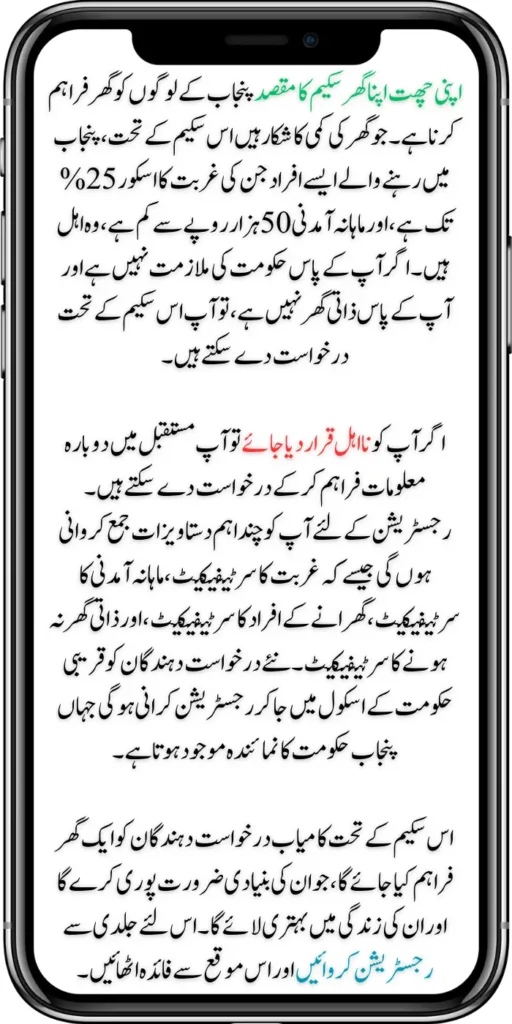 اپنی چھت اپنا گھر سکیم کا مقصد پنجاب کے لوگوں کو گھر فراہم
کرنا ہے۔ جو گھر کی کمی کا شکار ہیں اس سکیم کے تحت، پنجاب
میں رہنے والے ایسے افراد جن کی غربت کا اسکور 25%
تک ہے، اور ماہانہ آمدنی 50 ہزار روپے سے کم ہے، وہ اہل
ہیں۔ اگر آپ کے پاس حکومت کی ملازمت نہیں ہے اور
آپ کے پاس ذاتی گھر نہیں ہے، تو آپ اس سکیم کے تحت
درخواست دے سکتے ہیں۔
اگر آپ کو نااہل قرار دیا جائے تو آپ مستقبل میں دوبارہ
معلومات فراہم کر کے درخواست دے سکتے ہیں۔
رجسٹریشن کے لئے آپ کو چند اہم دستاویزات جمع کروانی
ہوں گی جیسے کہ غربت کا سرٹیفیکیٹ، ماہانہ آمدنی کا
سرٹیفیکیٹ، گھرانے کے افراد کا سرٹیفیکیٹ، اور ذاتی گھر نہ
ہونے کا سرٹیفیکیٹ۔ نئے درخواست دہندگان کو قریبی
حکومت کے اسکول میں جا کر رجسٹریشن کرانی ہوگی جہاں
پنجاب حکومت کا نمائندہ موجود ہوتا ہے۔
اس سکیم کے تحت کامیاب درخواست دہندگان کو ایک گھر
فراہم کیا جائے گا، جو ان کی بنیادی ضرورت پوری کرے گا
اور ان کی زندگی میں بہتری لائے گا۔ اس لئے جلدی سے
رجسٹریشن کروائیں اور اس موقع سے فائدہ اٹھائیں۔